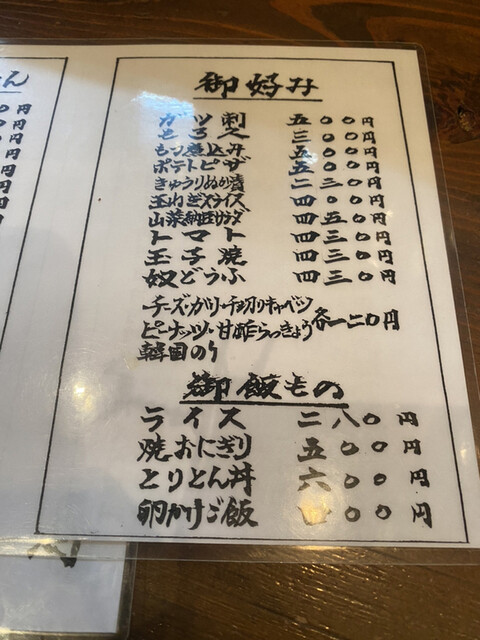 御好み
ガツ刺 五〇〇円
三〇〇円
もつ煮込み 五〇〇円
ポテトピザ 五〇〇円
きゅうりぬか漬 二三〇円
玉ねぎスライス 四〇〇円
山菜納豆サラダ 四五〇円
トマト 四三〇円
玉子焼 四三〇円
奴どうふ 四三〇円
チーズ・ガリ・チョリキャベツ
ピーナッツ・甘酢らっきょう 各一二〇円
韓国のり
御飯もの
ライス 二八〇円
焼おにぎり 五〇〇円
とりとん丼 六〇〇円
卵かけご飯 四〇〇円